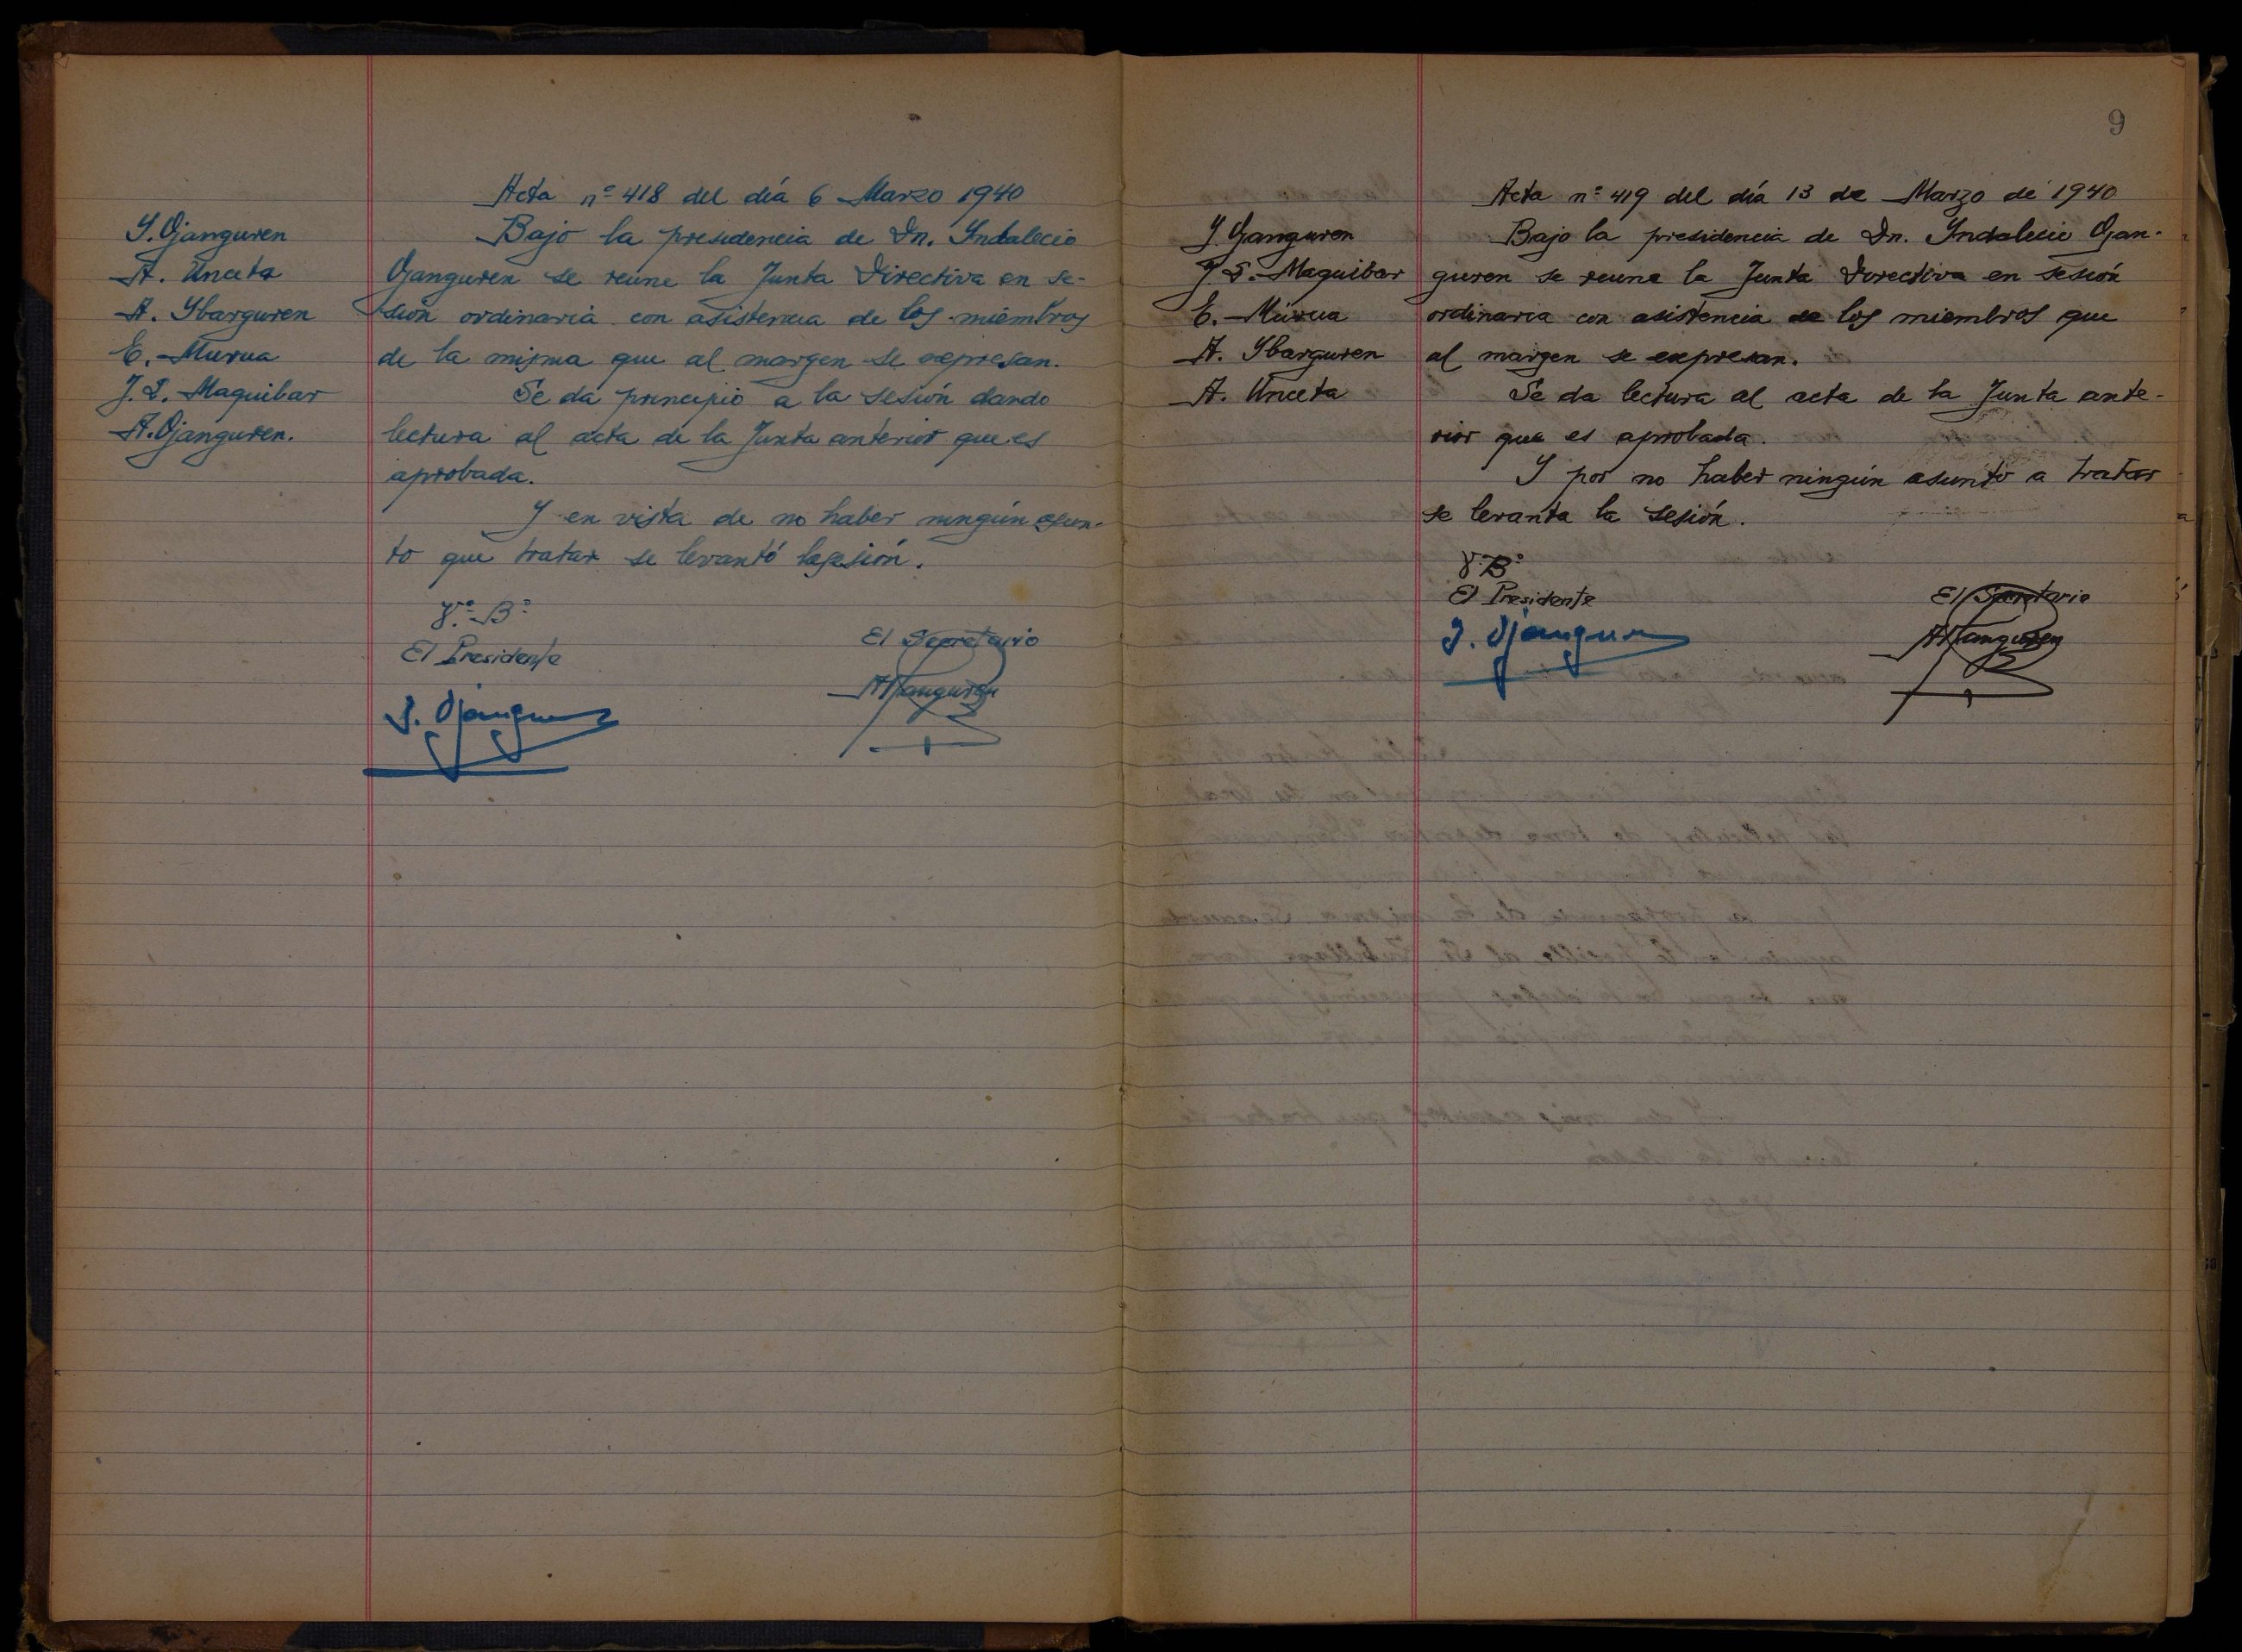 Acta nº 418 del día 6 Marzo 1940
I. Ojanguren
A. Unceta
A. Ybarguren
E. Murua
J. L. Maguibar
A. Ojanguren.
Bajo la presidencia de Dn. Yndalecio
Ojanguren se reúne la Junta Directiva en se-
sión ordinaria con asistencia de los miembros
de la misma que al margen se expresan.
Se dá principio a la sesión dando
lectura al acta de la Junta anterior que es
aprobada.
Y en vista de no haber ningún asun-
to que tratar se levantó la sesión.
Vº Bº
El Presidente
I. Ojanguren
El Secretario
A Ojanguren
9
Acta nº 419 del día 13 de Marzo de 1940
I. Ojanguren
J. L. Maguibar
E. Murua
A. Ybarguren
A. Unceta
Bajo la presidencia de Dn. Yndalecio Ojan-
guren se reune la Junta Directiva en sesión
ordinaria con asistencia de los miembros que
al margen se expresan.
Se da lectura al acta de la Junta ante-
rior que es aprobada.
Y por no haber ningún asunto a tratar
se levanta la sesión.
Vº Bº
El Presidente
I. Ojanguren
El Secretario
A Ojanguren